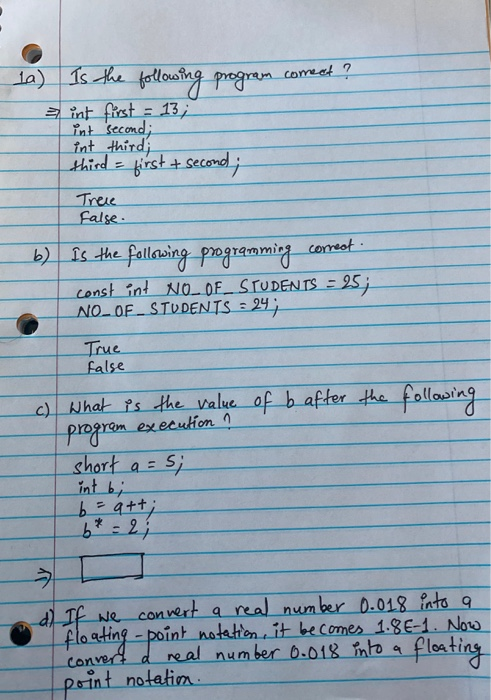 1a) Is the following program correct ?
⇒ int first = 13;
int second;
int third;
third = first + second;
True
False.
b) Is the following programming correct.
const int NO_OF_STUDENTS = 25;
NO_OF_STUDENTS = 24;
True
False
c) What is the value of b after the following
program execution ?
short a = 5;
int b;
b = a++;
b* = 2;
⇒
d) If we convert a real number 0.018 into a
floating-point notation, it becomes 1.8E-1. Now
convert a real number 0.018 into a floating
point notation.